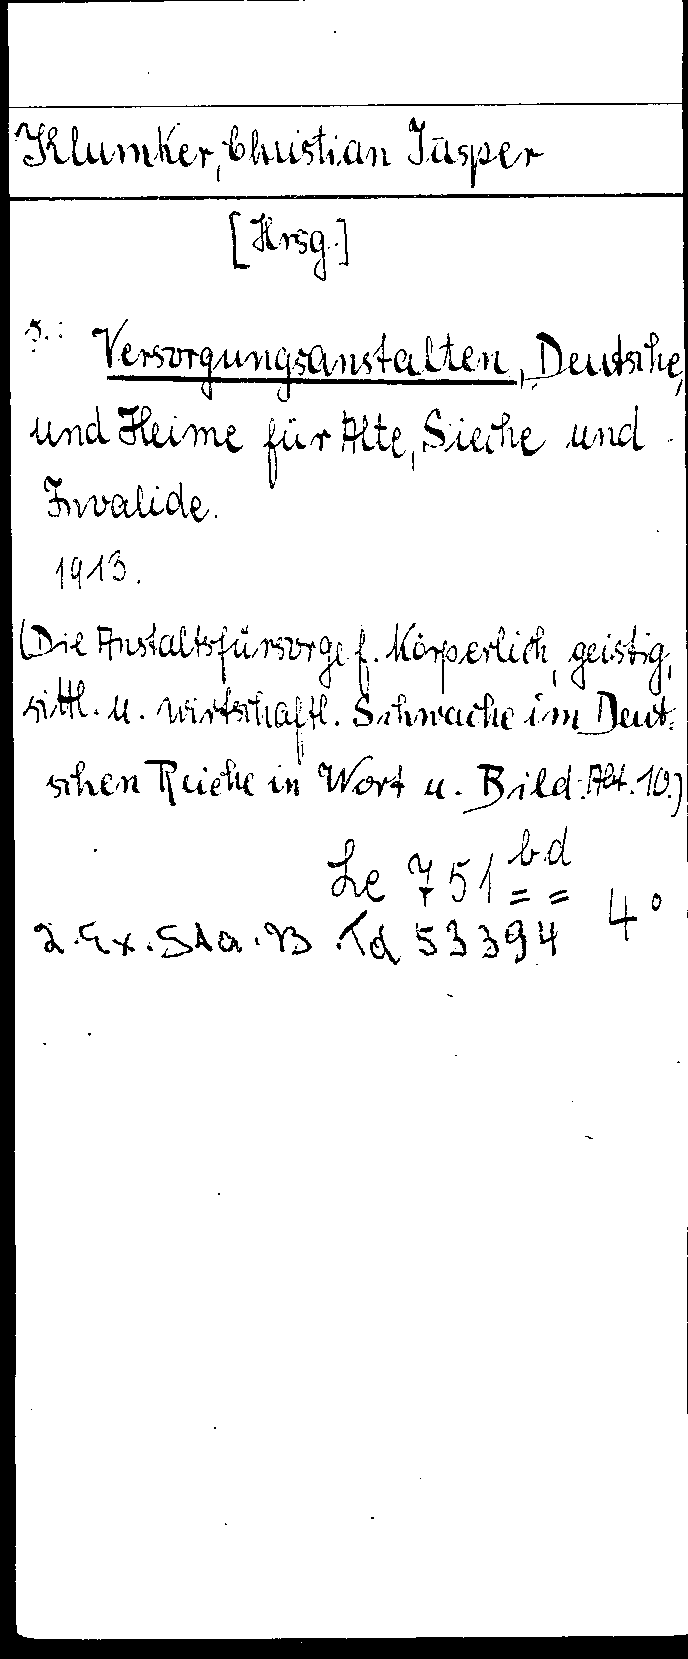 Klumker, Christian Jasper
[Hrsg.]
s.: Versorgungsanstalten, Deutsche,
und Heime für Alte, Sieche und
Invalide.
1913.
(Die Anstaltsfürsorge f. körperlich, geistig,
sittl. u. wirtschaftl. Schwache im Deut-
schen Reiche in Wort u. Bild. Abt. 10.)
Le 751 bd
4°
2. Ex. Sta. B Td 53394